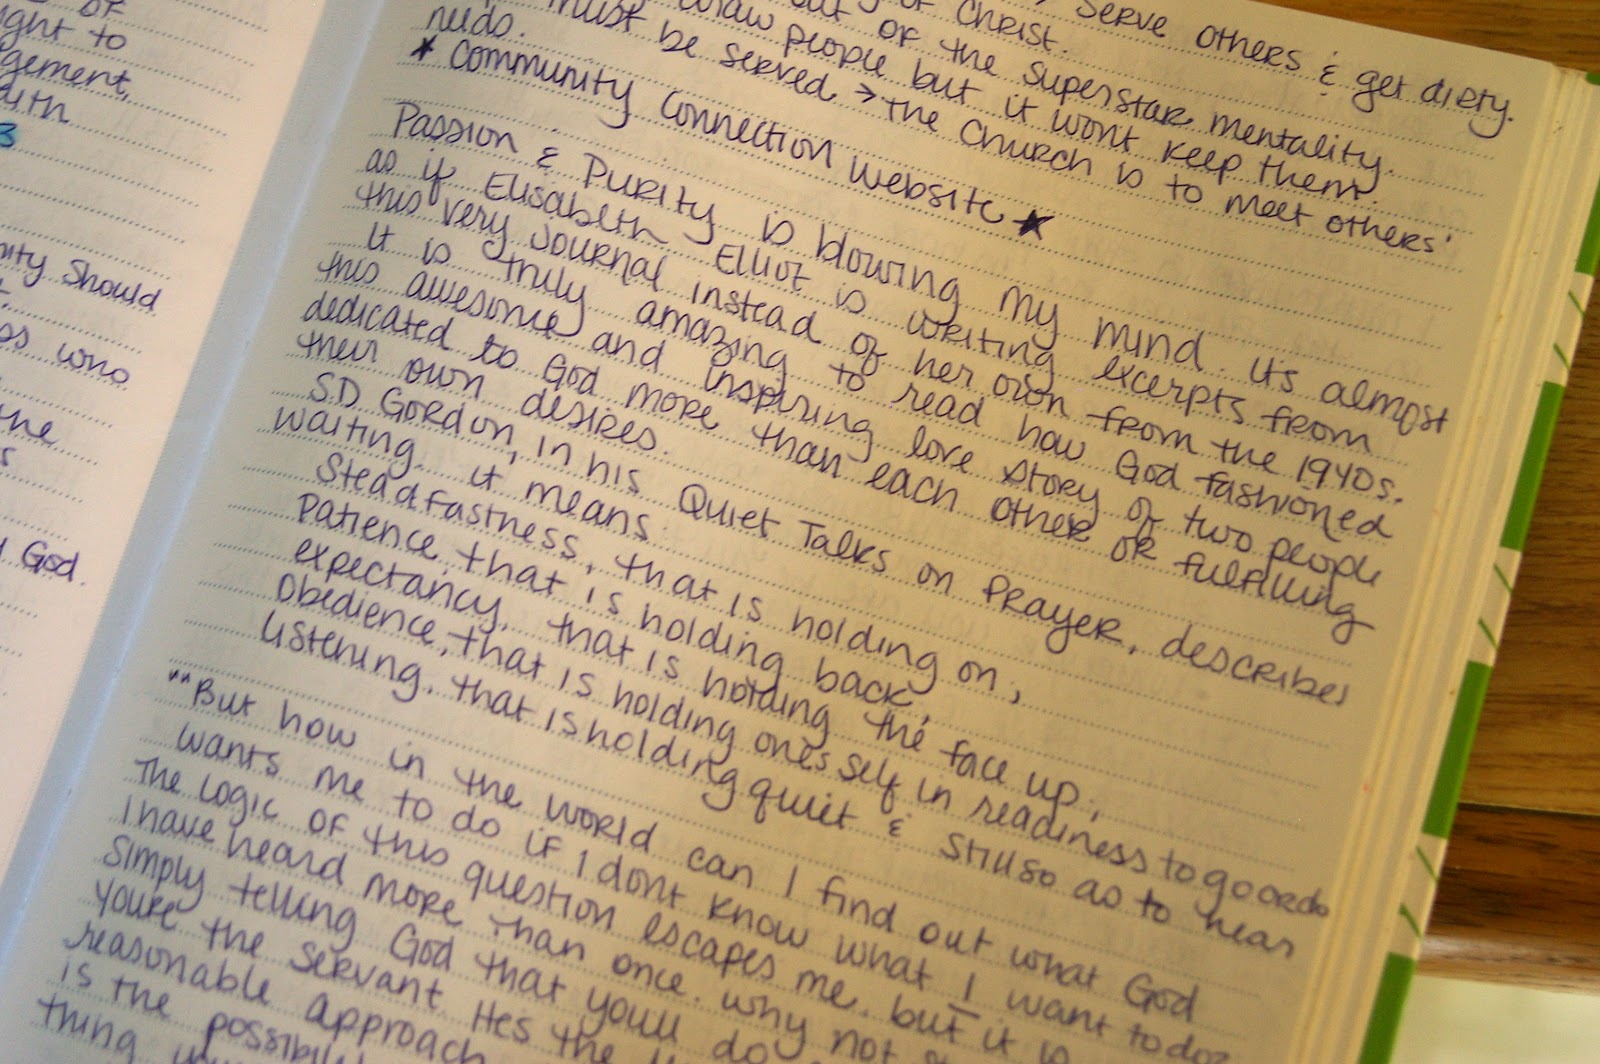 of
ght to
gement,
uth
3
nity Should
ss who
one
s
God.
serve others & get dirty.
of Christ.
of the superstar mentality.
draw people but it wont keep them.
must be served → the Church is to meet others'
needs.
★ Community Connection Website ★
Passion & Purity is blowing my mind. Its almost
as if Elisabeth Elliot is writing excerpts from
this very journal instead of her own from the 1940s.
It is truly amazing to read how God fashioned
this awesome and inspiring love story of two people
dedicated to God more than each other or fulfilling
their own desires.
SD Gordon, in his Quiet Talks on Prayer, describes
waiting. it means:
Steadfastness, that is holding on;
Patience, that is holding back;
expectancy, that is holding the face up;
Obedience, that is holding ones self in readiness to go or do
Listening, that is holding quiet & still so as to hear
"But how in the world can I find out what God
wants me to do if I dont know what I want to do?
The logic of this question escapes me, but it is
I have heard more than once. why not
simply telling God that youll do
youre the servant. Hes the
reasonable approach
is the
thing